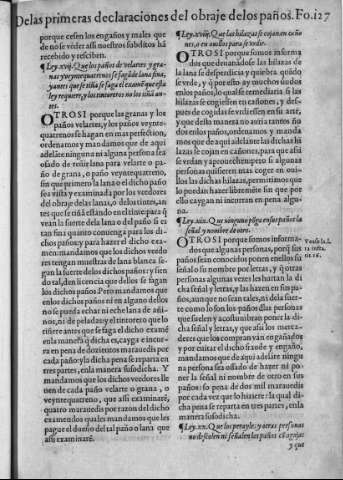 De las primeras declaraciones del obraje de los paños. Fo.127
porque cesen los engaños y males que
de no se veder assi nuestros subditos hã
recebido y resciben.
¶ Ley .xvij. Que los paños de velartes y granas
y veynte quatrenos se hagã de lana fina,
y antes que se tiña se haga el examẽ que esta
ley requiere, y los tintoreros no los tiñã antes.
OTROSI porque las granas y los
paños velartes, y los paños veynte
quatrenos se hagan en mas perfection,
ordenamos y mandamos que de aqui
adelãte ninguna ni alguna persona sea
osado de teñir lana para velarte o pa
ño de grana, o paño veyntequatreno,
sin que primero la lana o el dicho paño
sea vista y examinada por los veedores
del obraje delas lanas, o delos tintes, an
tes que se tiñã estando enel tinte para q̃
vean la suerte dela lana o del paño si es
tan fina quanto conuenga para los di-
chos paños: y para hazer el dicho exa-
men mandamos que los dichos veedo-
res tengan muestras de lana blanca se-
gun la suerte delos dichos paños: y sien
do tal, den licencia que dellos se hagan
los dichos paños Pero mandamos que
enlos dichos paños ni en alguno dellos
no se pueda echar ni eche lana de añi-
nos, ni de peladas: y el tintorero que lo
tiñere antes que se haga el dicho examẽ
enla manera q̃ dicha es, cayga e incur-
ra en pena de dozientos marauedis por
cada paño: y la dicha pena se reparta en
tres partes, enla manera susodicha. Y
mandamos que los dichos veedores lle
uen de cada paño velarte o grana, o
veyntequatreno, que assi examinarẽ,
quatro marauedis por razon del dicho
examen: delos quales mandamos que les
pague el dueño del tal paño o lana que
assi examinarẽ.
¶ Ley .xviij. Que las hilazas se cojan en cañones,
o en ausllos para se vrdir.
OTROSI porque somos informa
dos que demandose las hilazas de
la lana se desperdicia y quiebra quãdo
se vrde, y q̃ por esto ay muchos daños
enlos paños, lo qual se remediaria si las
hilazas se cogiessen en cañones, y des-
pues de cogidas se vrdiessen en si arte,
y que desta manera no auria tantos da
ños enlos paños, ordenamos y manda
mos que de aqui adelante las dichas hi
lazas se cojan en cañones, para que assi
se vrdan y aprouechen: pero si algunas
personas quisieren mas coger en oui-
llos las dichas hilazas, permitimos que
lo puedan hazer libremente sin que por
ello caygan ni incurran en pena algu-
na.
¶ Ley .xix. Que ninguno põga en sus paños la
señal y nombre de otro.
OTROSI porque somos informa-
dos que algunas personas, porq̃ sus
paños sean conoscidos ponen enellos su
señal o su nombre por letras, y q̃ otras
personas algunas vezes les hurtan la di
cha señal y letras, y las hazen en sus pa-
ños, aun que no sean tales, ni dela suer-
te como lo son los paños dlas personas
que suelen y acostumbran poner la di-
cha señal y letras, y que assi los merca-
deres que los compran van engañados
y por euitar el dicho fraude y engaño,
mandamos que de aqui adelãte ningu
na persona sea osado de hazer ni po-
ner la señal ni nombre de otro en sus
paños: so pena de dos mil marauedis
por cada vez que lo hiziere: la qual di-
cha pena se reparta en tres partes, enla
manera susodicha.
¶ Ley .xx. Que los perayles y otras personas
no desfolen ni señalen los paños cõ tijeras
y que